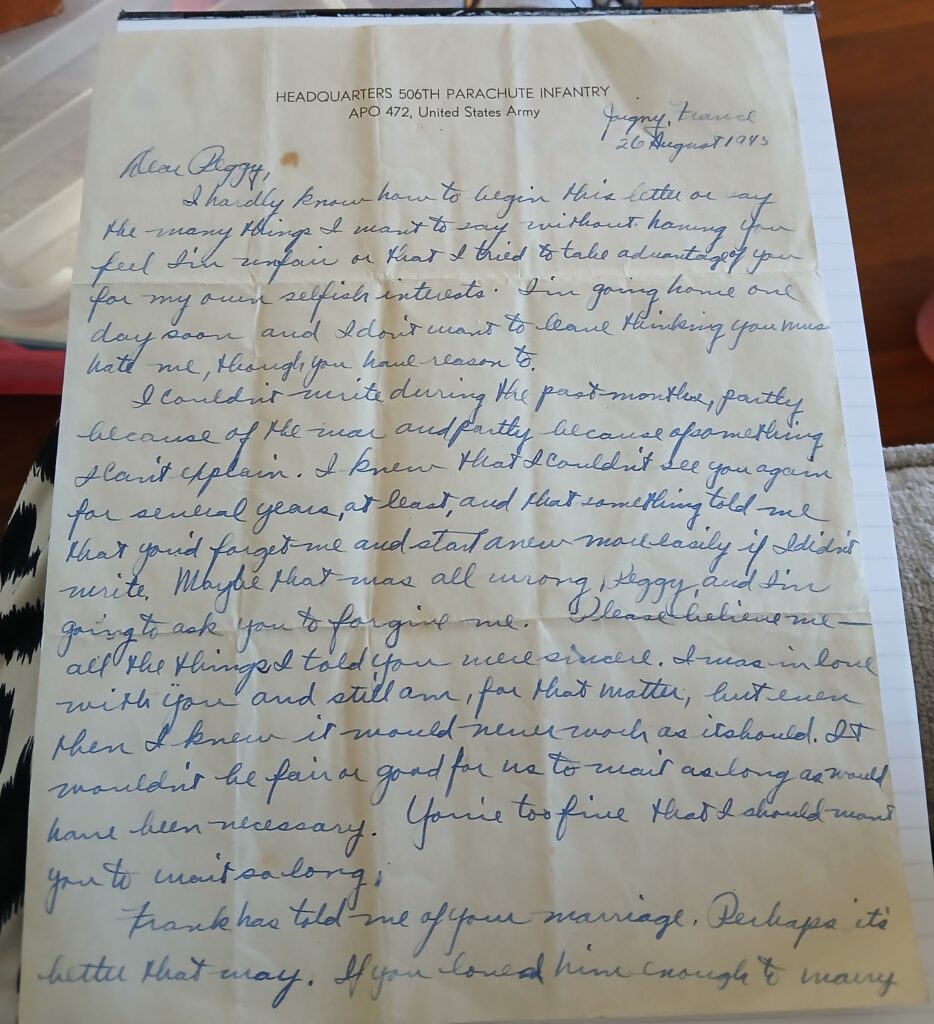 HEADQUARTERS 506TH PARACHUTE INFANTRY
APO 472, United States Army
Joigny, France
26 August 1945
Dear Peggy,
I hardly know how to begin this letter or say
the many things I want to say without having you
feel I'm unfair or that I tried to take advantage of you
for my own selfish interests. I'm going home one
day soon and I don't want to leave thinking you mus
hate me, though you have reason to.
I couldn't write during the past months, partly
because of the war and partly because of something
I can't explain. I knew that I couldn't see you again
for several years, at least, and that something told me
that you'd forget me and start anew more easily if I didn't
write. Maybe that was all wrong, Peggy, and I'm
going to ask you to forgive me. Please believe me —
all the things I told you were sincere. I was in love
with you and still am, for that matter, but even
then I knew it would never work as it should. It
wouldn't be fair or good for us to wait as long as would
have been necessary. You're too fine that I should want
you to wait so long.
Frank has told me of your marriage. Perhaps it's
better that way. If you loved him enough to marry